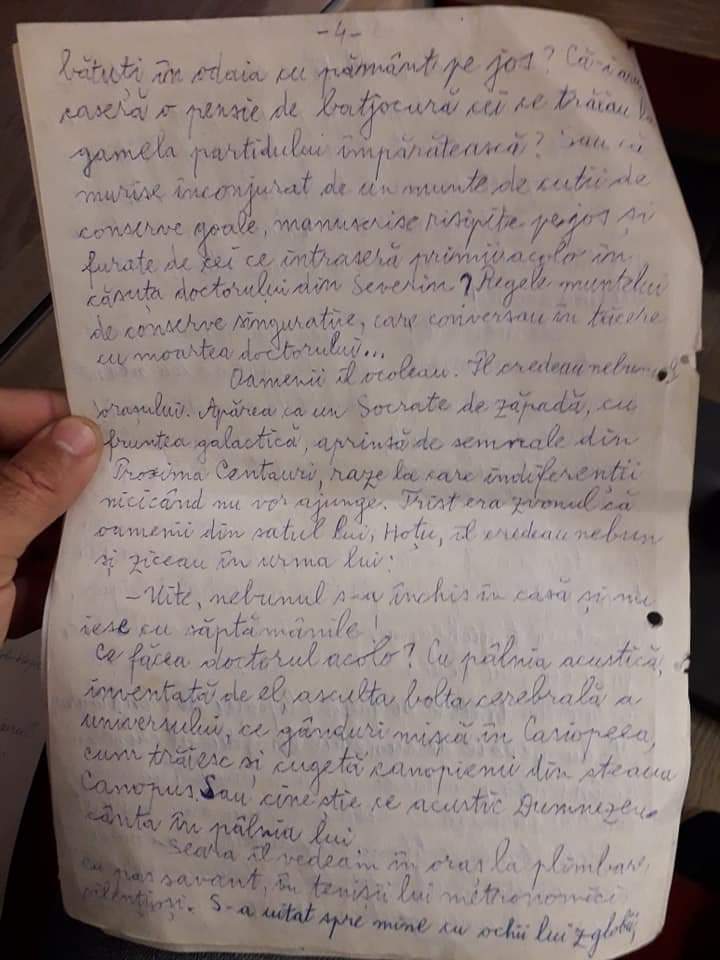 -4-
bătuți în odaia cu pământ pe jos? Că-i
caseră o pensie de batjocură cei ce trăiau
gamela partidului împărătească? Sau că
murise înconjurat de un munte de cutii de
conserve goale, manuscrise risipite pe jos și
furate de cei ce intraseră primii acolo în
căsuța doctorului din Severin? Regele muntelui
de conserve singuratice, care conversau în tăcere
cu moartea doctorului...
Oamenii îl ocoleau. Îl credeau nebunul
orașului. Apărea ca un Socrate de zăpadă, cu
fruntea galactică, aprinsă de semnale din
Proxima Centauri, raze la care indiferenții
nicicând nu vor ajunge. Trist era zvonul că
oamenii din satul lui, Hoțu, îl credeau nebun
și ziceau în urma lui:
-Uite, nebunul s-a închis în casă și nu
iese cu săptămânile!
Ce făcea doctorul acolo? Cu pâlnia acustică,
inventată de el, asculta bolta cerebrală a
universului, ce gânduri mișcă în Casiopeea,
cum trăiesc și cugetă canopienii din steaua
Canopus. Sau cine știe ce acustic Dumnezeu
cânta în pâlnia lui.
Seara îl vedeam în oraș la plimbare,
cu pas savant, în tenișii lui metronomici
silențioși. S-a uitat spre mine cu ochii lui zglobii,